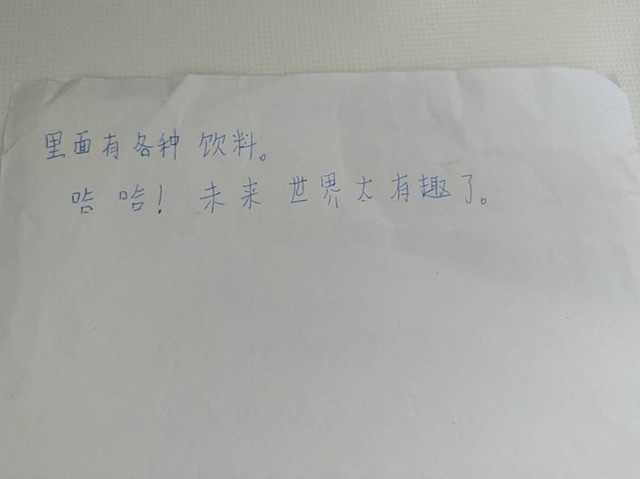 里面有各种饮料。
哈哈！未来世界太有趣了。